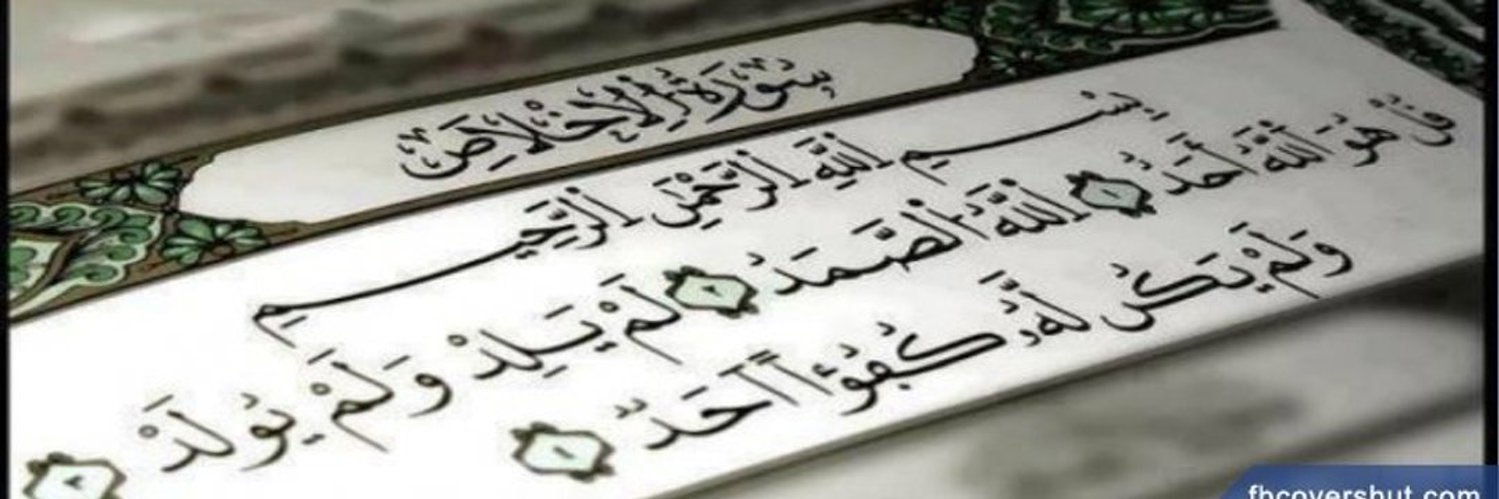 سُورَةُ الْإِخْلَاصِ
بِسْمِ ٱللَّهِ ٱلرَّحْمَٰنِ ٱلرَّحِيمِ
قُلْ هُوَ ٱللَّهُ أَحَدٌ ١ ٱللَّهُ ٱلصَّمَدُ ٢ لَمْ يَلِدْ وَلَمْ يُولَدْ ٣
وَلَمْ يَكُن لَّهُۥ كُفُؤًا أَحَدٌۢ
fbcovershut.com